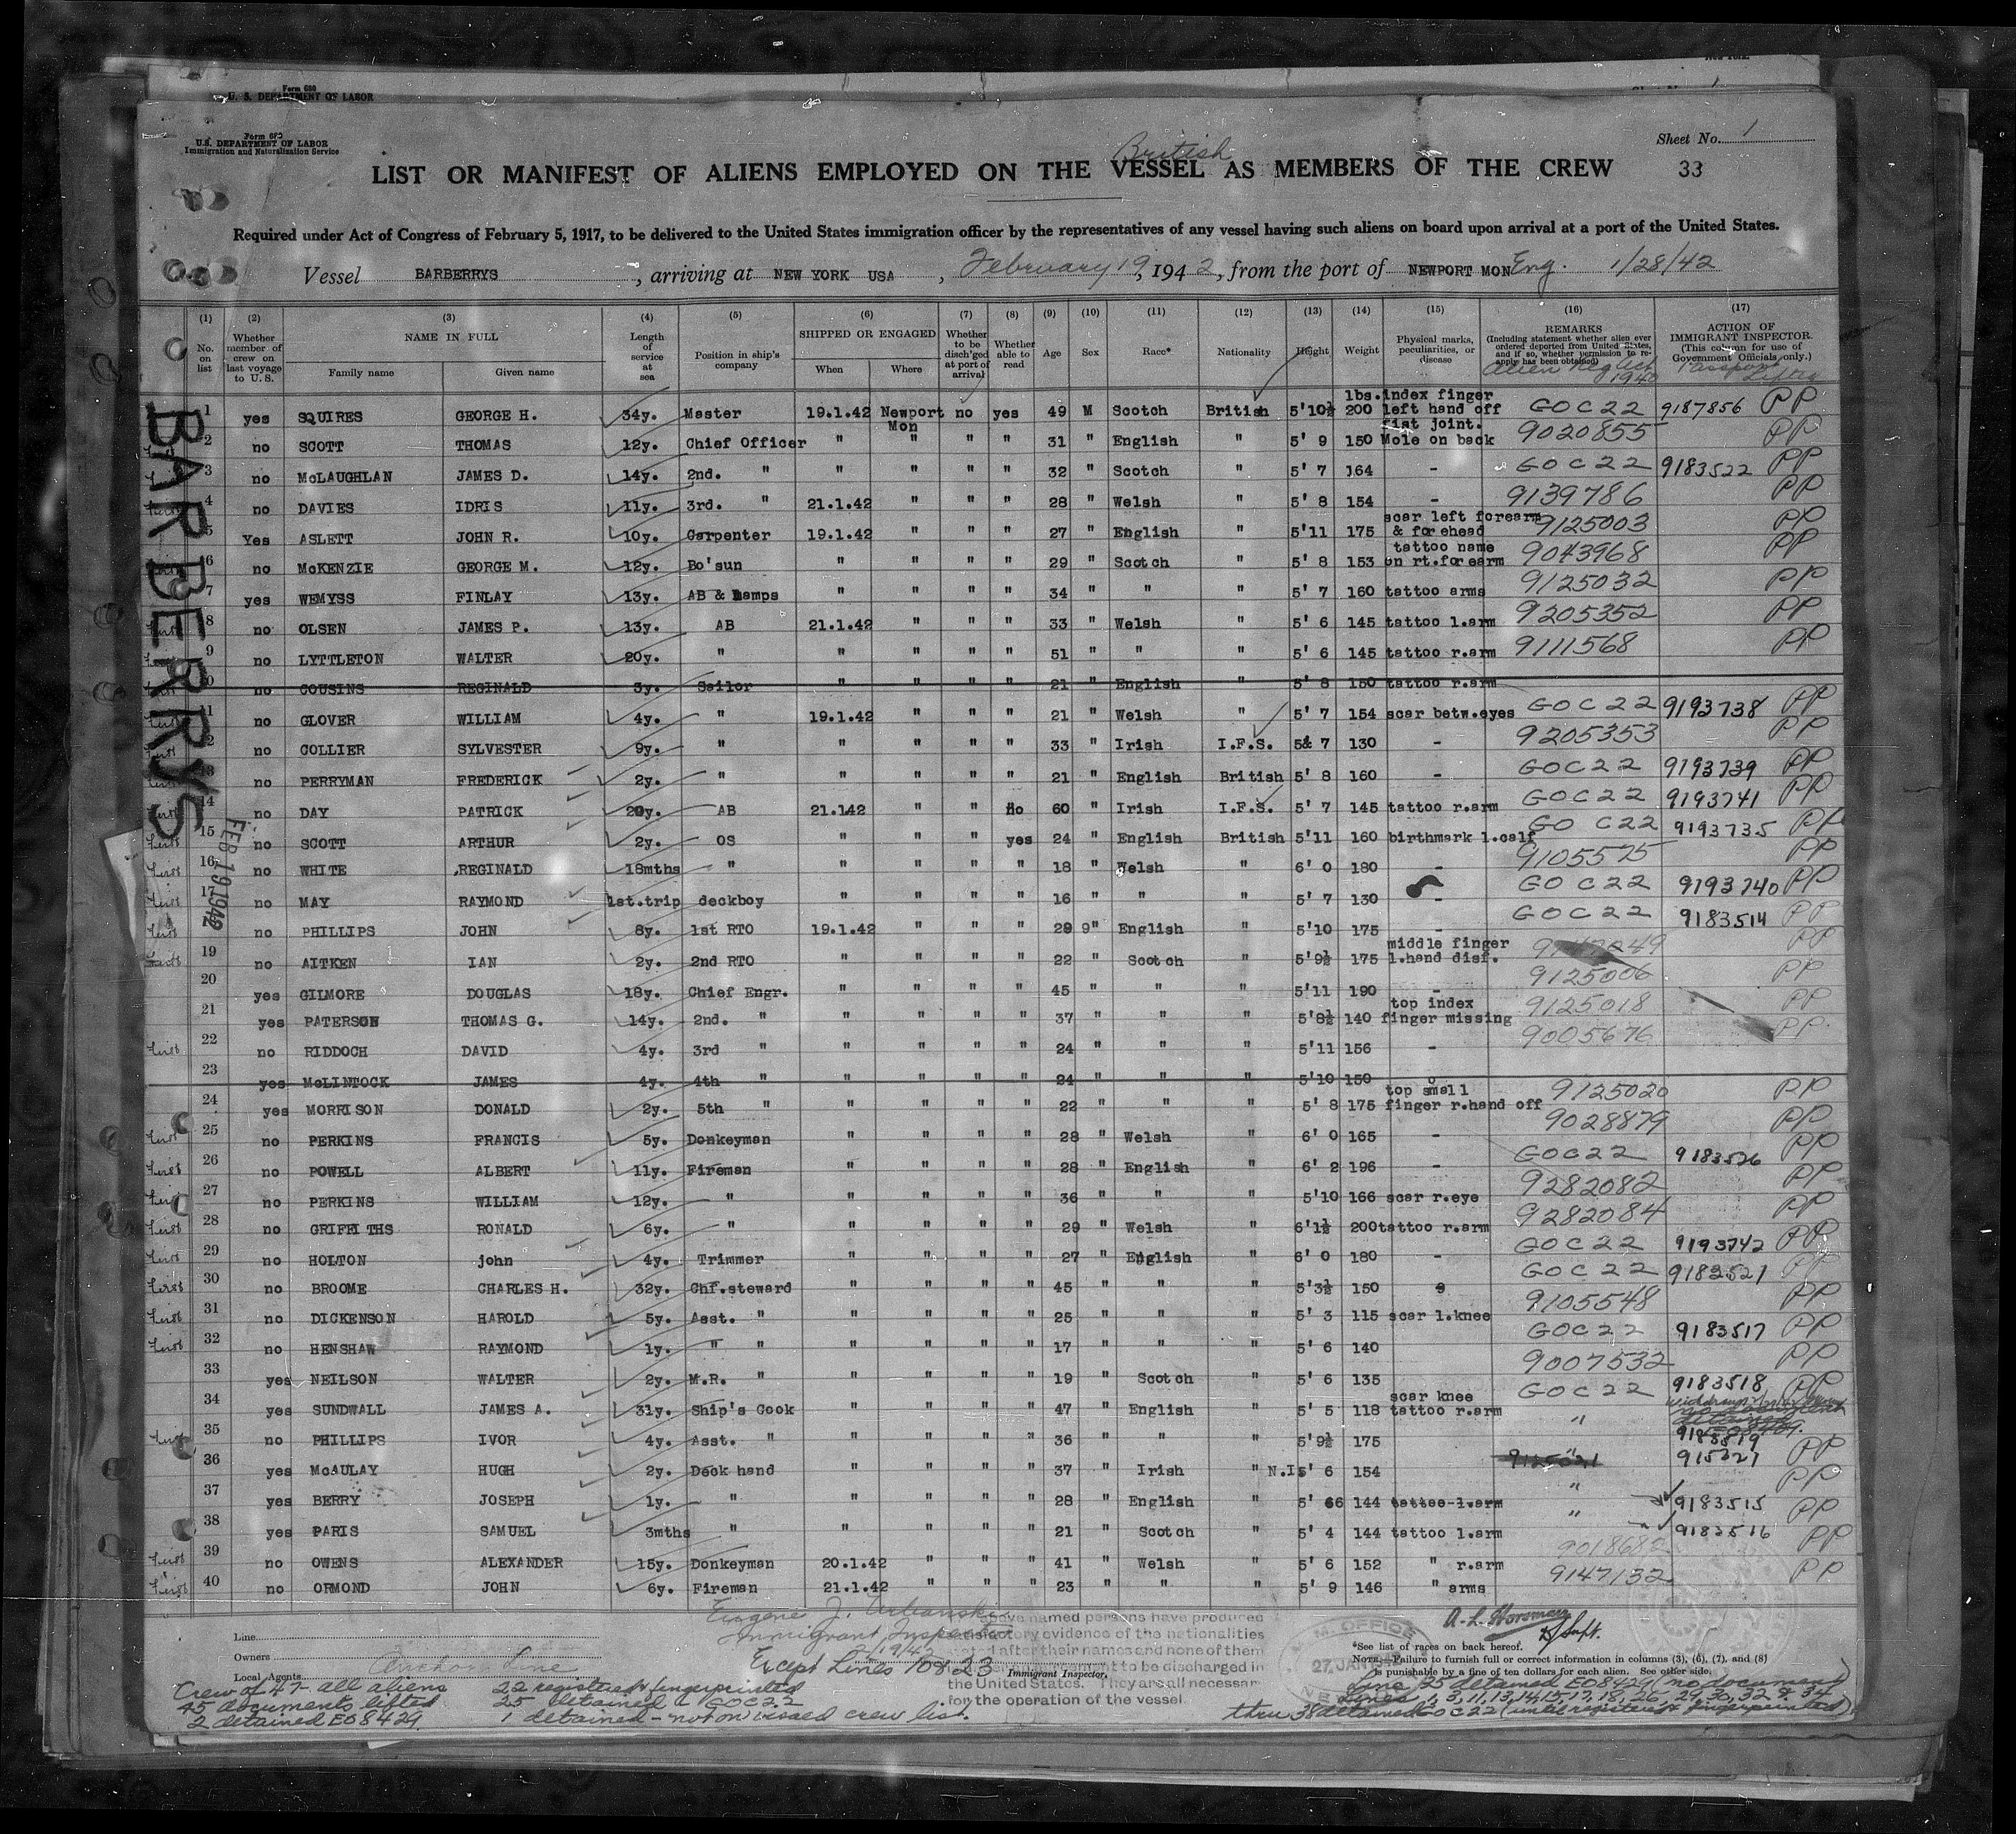 Form 680
U. S. DEPARTMENT OF LABOR
Form 680
U.S. DEPARTMENT OF LABOR
Immigration and Naturalization Service
Sheet No. 1
British
LIST OR MANIFEST OF ALIENS EMPLOYED ON THE VESSEL AS MEMBERS OF THE CREW 33
Required under Act of Congress of February 5, 1917, to be delivered to the United States immigration officer by the representatives of any vessel having such aliens on board upon arrival at a port of the United States.
Vessel BARBERRYS, arriving at NEW YORK USA, February 19, 1942, from the port of NEWPORT MON Eng. 1/28/42
(1) (2) (3) (4) (5) (6) (7) (8) (9) (10) (11) (12) (13) (14) (15) (16) (17)
No. on list | Whether member of crew on last voyage to U. S. | NAME IN FULL Family name Given name | Length of service at sea | Position in ship's company | SHIPPED OR ENGAGED When Where | Whether to be disch'ged at port of arrival | Whether able to read | Age | Sex | Race* | Nationality | Height | Weight | Physical marks, peculiarities, or disease | REMARKS (Including statement whether alien ever ordered deported from United States, and if so, whether permission to re-apply has been obtained) Alien Reg Act 1940 | ACTION OF IMMIGRANT INSPECTOR. (This column for use of Government Officials only.) Passport Lifted
BARBERRYS
FEB 19 1942
1 yes SQUIRES GEORGE H. 34y. Master 19.1.42 Newport Mon no yes 49 M Scotch British 5'10½ lbs. 200 index finger left hand off fist joint. GOC22 9187856 PP
2 no SCOTT THOMAS 12y. Chief Officer " " " " 31 " English " 5' 9 150 Mole on back 9020855 PP
3 no McLAUGHLAN JAMES D. 14y. 2nd. " " " " " 32 " Scotch " 5' 7 164 - GOC22 9183522 PP
4 no DAVIES IDRIS 11y. 3rd. " 21.1.42 " " " 28 " Welsh " 5' 8 154 - 9139786 PP
5 Yes ASLETT JOHN R. 10y. Carpenter 19.1.42 " " " 27 " English " 5'11 175 scar left forearm & forehead 9125003 PP
6 no McKENZIE GEORGE M. 12y. Bo'sun " " " " 29 " Scotch " 5' 8 153 tattoo name on rt.forearm 9043968 PP
7 yes WEMYSS FINLAY 13y. AB & Lamps " " " " 34 " " " 5' 7 160 tattoo arms 9125032 PP
8 no OLSEN JAMES P. 13y. AB 21.1.42 " " " 33 " Welsh " 5' 6 145 tattoo l.arm 9205352 PP
9 no LYTTLETON WALTER 20y. " " " " " 51 " " " 5' 6 145 tattoo r.arm 9111568 PP
10 no COUSINS REGINALD 3y. Sailor " " " " 21 " English " 5' 8 150 tattoo r.arm
11 no GLOVER WILLIAM 4y. " 19.1.42 " " " 21 " Welsh " 5' 7 154 scar betw.eyes GOC22 9193738 PP
12 no COLLIER SYLVESTER 9y. " " " " " 33 " Irish I.F.S. 5& 7 130 - 9205353 PP
13 no PERRYMAN FREDERICK 2y. " " " " " 21 " English British 5' 8 160 - GOC22 9193739 PP
14 no DAY PATRICK 20y. AB 21.142 " " no 60 " Irish I.F.S. 5' 7 145 tattoo r.arm GOC22 9193741 PP
15 no SCOTT ARTHUR 2y. OS " " " yes 24 " English British 5'11 160 birthmark l.calf GOC22 9193735 PP
16 no WHITE REGINALD 18mths " " " " " 18 " Welsh " 6' 0 180 - 9105575 PP
17 no MAY RAYMOND 1st.trip deckboy " " " " 16 " " " 5' 7 130 - GOC22 9193740 PP
no PHILLIPS JOHN 8y. 1st RTO 19.1.42 " " " 29 9" English " 5'10 175 - GOC22 9183514 PP
19 no AITKEN IAN 2y. 2nd RTO " " " " 22 " Scotch " 5'9½ 175 middle finger l.hand disf. PP
20 yes GILMORE DOUGLAS 18y. Chief Engr. " " " " 45 " " " 5'11 190 - 9125006 PP
21 yes PATERSON THOMAS G. 14y. 2nd. " " " " " 37 " " " 5'8½ 140 top index finger missing 9125018 PP
22 no RIDDOCH DAVID 4y. 3rd " " " " " 24 " " " 5'11 156 - 9005676 PP
23 yes McLINTOCK JAMES 4y. 4th " " " " " 24 " " " 5'10 150
24 yes MORRISON DONALD 2y. 5th " " " " " 22 " " " 5' 8 175 top small finger r.hand off 9125020 PP
25 no PERKINS FRANCIS 5y. Donkeyman " " " " 28 " Welsh " 6' 0 165 - 9028879 PP
26 no POWELL ALBERT 11y. Fireman " " " " 28 " English " 6' 2 196 - GOC22 9183526 PP
27 no PERKINS WILLIAM 12y. " " " " " 36 " " " 5'10 166 scar r.eye 9282082 PP
28 no GRIFFITHS RONALD 6y. " " " " " 29 " Welsh " 6'1½ 200 tattoo r.arm 9282084 PP
29 no HOLTON john 4y. Trimmer " " " " 27 " English " 6' 0 180 - GOC22 9193742 PP
30 no BROOME CHARLES H. 32y. Chf.steward " " " " 45 " " " 5'3½ 150 GOC22 9183521 PP
31 no DICKENSON HAROLD 5y. Asst. " " " " " 25 " " " 5' 3 115 scar l.knee 9105548 PP
32 no HENSHAW RAYMOND 1y. " " " " " " 17 " " " 5' 6 140 GOC22 9183517 PP
33 yes NEILSON WALTER 2y. M.R. " " " " " 19 " Scotch " 5' 6 135 9007532 PP
34 yes SUNDWALL JAMES A. 31y. Ship's Cook " " " " 47 " English " 5' 5 118 scar knee tattoo r.arm GOC22 9183518 PP
35 no PHILLIPS IVOR 4y. Asst. " " " " " 36 " " " 5'9½ 175 " detained 9183519
36 yes McAULAY HUGH 2y. Deck hand " " " " 37 " Irish " N.I. 5' 6 154 " PP
37 yes BERRY JOSEPH 1y. " " " " " 28 " English " 5' 66 144 tattoo l.arm " 9183515 PP
38 yes PARIS SAMUEL 3mths " " " " " 21 " Scotch " 5' 4 144 tattoo l.arm " 9183516 PP
39 no OWENS ALEXANDER 15y. Donkeyman 20.1.42 " " " 41 " Welsh " 5' 6 152 " r.arm 9018682 PP
40 no ORMOND JOHN 6y. Fireman 21.1.42 " " " 23 " " " 5' 9 146 " arms 9147132 PP
Eugene J. Urbanski
Immigrant Inspector
2/19/42
Except Lines 10 & 23
Immigrant Inspector.
above named persons have produced
satisfactory evidence of the nationalities
stated after their names and none of them
to be discharged in
the United States. They are all necessary
for the operation of the vessel.
M. OFFICE
27 JAN 1942
A. L. Horsman
Line
Owners
Local Agents Anchor Line
*See list of races on back hereof.
NOTE.—Failure to furnish full or correct information in columns (3), (6), (7), and (8)
is punishable by a fine of ten dollars for each alien. See other side.
Crew of 47 - all aliens
45 documents lifted
2 detained EO8429
22 registered & fingerprinted
25 detained GOC22
1 detained - not on visaed crew list.
Line 35 detained EO8429 (no document)
Lines 1, 3, 11, 13, 14, 15, 17, 18, 26, 29, 30, 32 & 34
thru 38 detained GOC22 (until registered & fingerprinted)